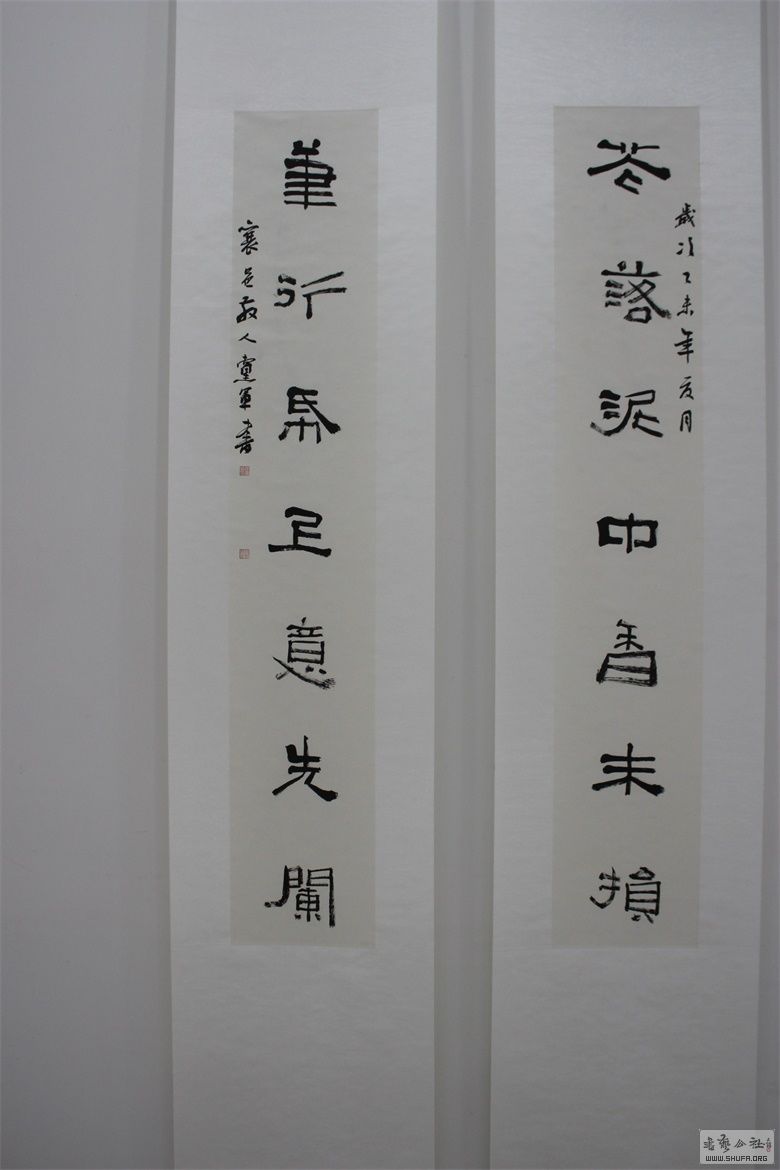 歲次乙未年夏月
花落泥中香未損
筆行帛上意先闌
襄邑散人黨軍書
書藝公社
WWW.SHUFA.ORG